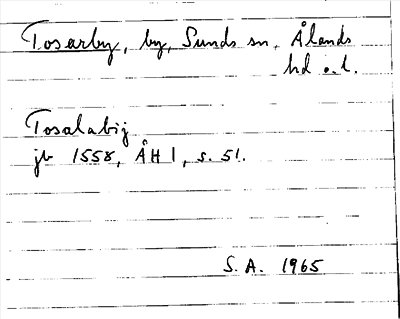 Tosarby, by, Sunds sn, Ålands
hd o. l.
Tosalabÿ
jb 1558, ÅH I, s. 51.
S. A. 1965